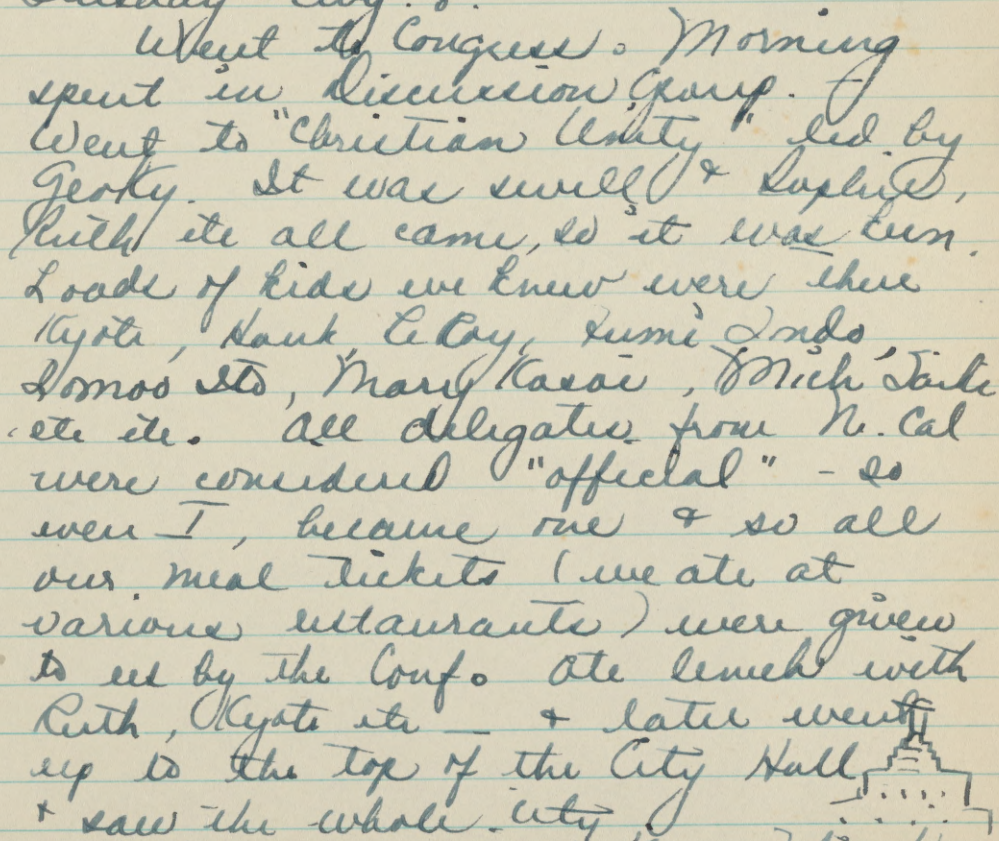 Tuesday Aug. 8.
Went to Congress. Morning
spent in Discussion Group.
Went to "Christian Unity" led by
Gerky. It was swell & Sophie,
Ruth etc all came, so it was fun.
Loads of kids we knew were there
Kyoto, Hank, LeRoy, Fumi Indo,
Tomoo Ito, Mary Kasai, Mich
etc etc. All delegates from N. Cal
were considered "official" - so
even I, became one & so all
our meal tickets (we ate at
various restaurants) were given
to us by the Conf. Ate lunch with
Ruth, Kyoto etc — & later went
up to the top of the City Hall
& saw the whole city